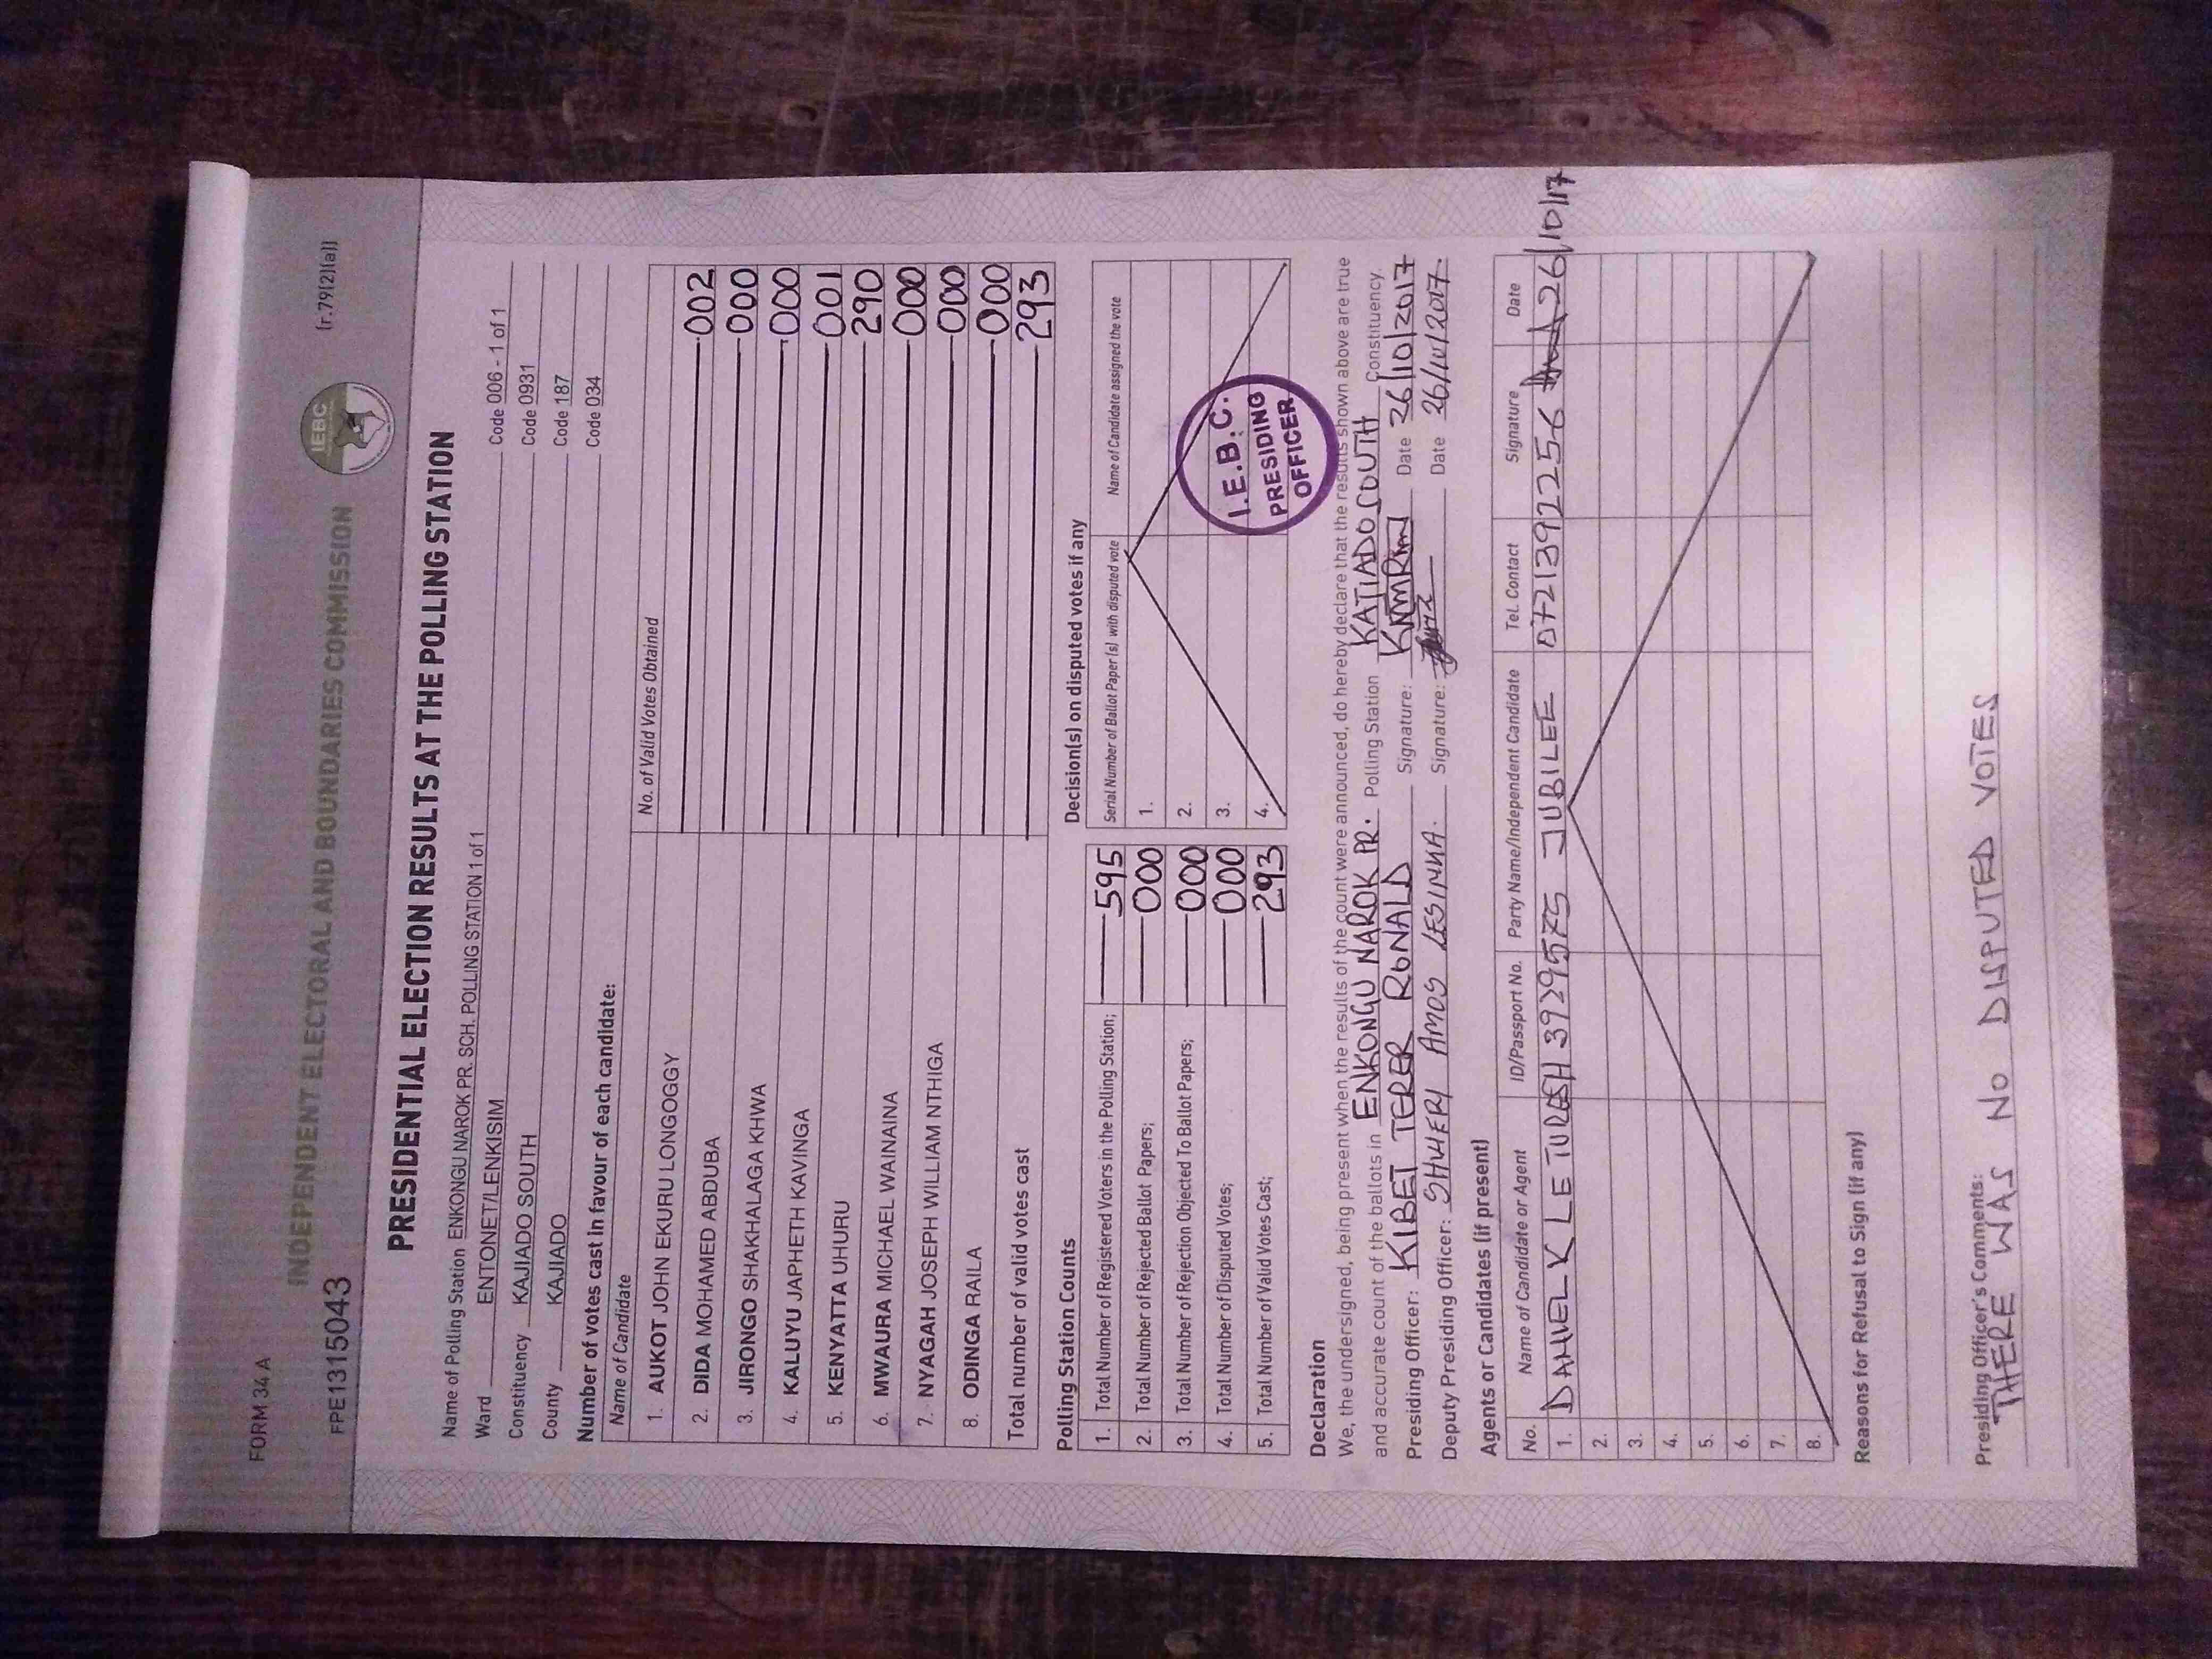 FORM 34 A
INDEPENDENT ELECTORAL AND BOUNDARIES COMMISSION
IEBC
(r.79(2)(a))
FPE1315043
PRESIDENTIAL ELECTION RESULTS AT THE POLLING STATION
Name of Polling Station ENKONGU NAROK PR. SCH. POLLING STATION 1 of 1 Code 006 - 1 of 1
Ward ENTONET/LENKISIM Code 0931
Constituency KAJIADO SOUTH Code 187
County KAJIADO Code 034
Number of votes cast in favour of each candidate:
Name of Candidate No. of Valid Votes Obtained
1. AUKOT JOHN EKURU LONGOGGY 002
2. DIDA MOHAMED ABDUBA 000
3. JIRONGO SHAKHALAGA KHWA 000
4. KALUYU JAPHETH KAVINGA 001
5. KENYATTA UHURU 290
6. MWAURA MICHAEL WAINAINA 000
7. NYAGAH JOSEPH WILLIAM NTHIGA 000
8. ODINGA RAILA 000
Total number of valid votes cast 293
Polling Station Counts
1. Total Number of Registered Voters in the Polling Station; 595
2. Total Number of Rejected Ballot Papers; 000
3. Total Number of Rejection Objected To Ballot Papers; 000
4. Total Number of Disputed Votes; 000
5. Total Number of Valid Votes Cast; 293
Decision(s) on disputed votes if any
Serial Number of Ballot Paper (s) with disputed vote Name of Candidate assigned the vote
1.
2.
3.
4.
I.E.B.C.
PRESIDING
OFFICER
Declaration
We, the undersigned, being present when the results of the count were announced, do hereby declare that the results shown above are true
and accurate count of the ballots in ENKONGU NAROK PR. Polling Station KATIADO SOUTH Constituency.
Presiding Officer: KIBET TERER RONALD Signature: Date 26/10/2017
Deputy Presiding Officer: AMOS Signature: Date 26/10/2017.
Agents or Candidates (if present)
No. Name of Candidate or Agent ID/Passport No. Party Name/Independent Candidate Tel. Contact Signature Date
1. DANIEL K LETURESH 3929575 JUBILEE 0721392256 26/10/17
2.
3.
4.
5.
6.
7.
8.
Reasons for Refusal to Sign (if any)
Presiding Officer's Comments:
THERE WAS NO DISPUTED VOTES